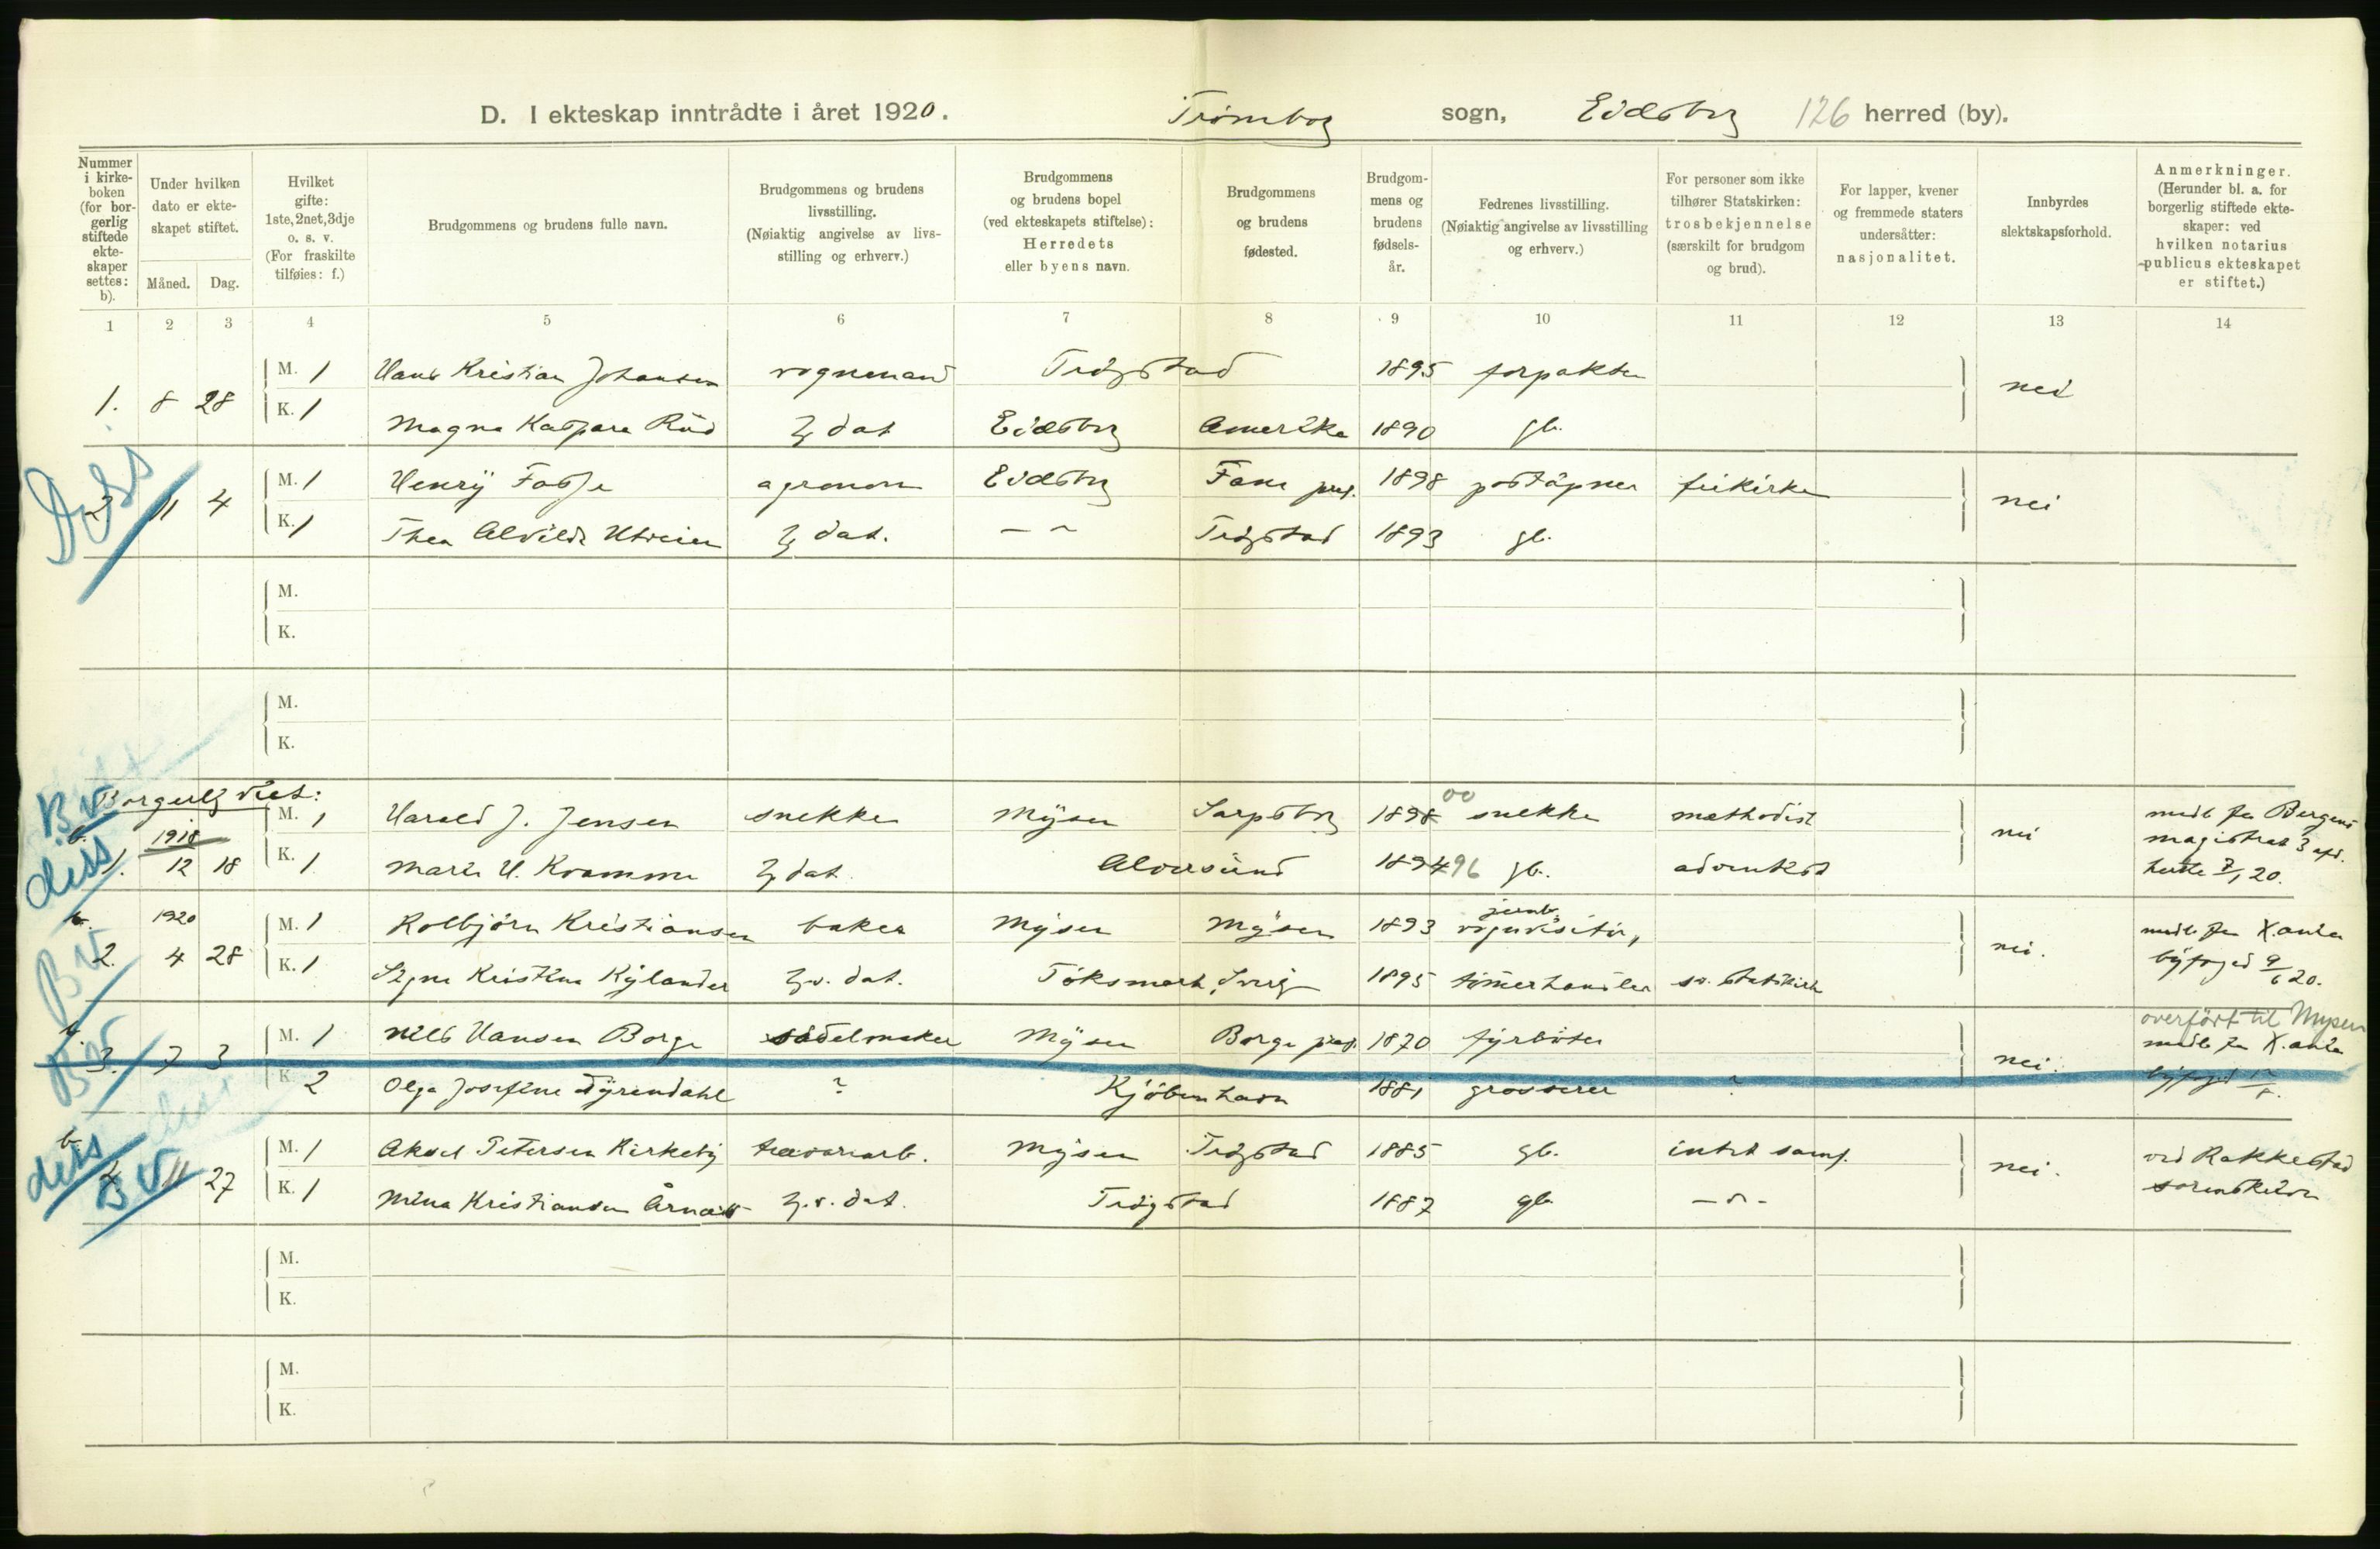 D. I ekteskap inntrådte i året 1920. Trömborg sogn, Eidsberg 126 herred (by).
Nummer i kirkeboken (for borgerlig stiftede ekteskaper settes: b).
Under hvilken dato er ekteskapet stiftet.
Måned. Dag.
Hvilket gifte: 1ste, 2net, 3dje o. s. v. (For fraskilte tilføies: f.)
Brudgommens og brudens fulle navn.
Brudgommens og brudens livsstilling. (Nøiaktig angivelse av livsstilling og erhverv.)
Brudgommens og brudens bopel (ved ekteskapets stiftelse): Herredets eller byens navn.
Brudgommens og brudens fødested.
Brudgommens og brudens fødselsår.
Fedrenes livsstilling. (Nøiaktig angivelse av livsstilling og erhverv.)
For personer som ikke tilhører Statskirken: trosbekjennelse (særskilt for brudgom og brud).
For lapper, kvener og fremmede staters undersåtter: nasjonalitet.
Innbyrdes slektskapsforhold.
Anmerkninger. (Herunder bl. a. for borgerlig stiftede ekteskaper: ved hvilken notarius publicus ekteskapet er stiftet.)
1 2 3 4 5 6 7 8 9 10 11 12 13 14
1. 8 28 M. 1 Hans Kristian Johansen vognmand Trögstad 1895 forpakter nei
K. 1 Magna Kaspara Rud dat Eidsberg Amerika 1890 gb.
Diss
2 11 4 M. 1 Henry agronom Eidsberg Fane prgj. 1898 poståpner frikirke nei
K. 1 Thea Alvilde dat. — " — Trögstad 1893 gb.
M.
K.
M.
K.
Borgerlig viet:
B.V. diss
b. 1. 1918 12 18 M. 1 Harald J. Jensen snekker Mysen Sarpsborg 1898 00 snekker methodist nei medl. fra Bergens magistrat 3 afd.
K. 1 Marie H. Kvamme dat. Alversund 1894 96 gb. adventist 7/1 20.
BV
b. 2. 1920 4 28 M. 1 Kolbjörn Kristiansen baker Mysen Mysen 1893 jernb. vognvisitör, nei. medl. fra X.ania
K. 1 Signe Kristine Kylander dat. Töksmark, Sverig 1895 tömerhandler sv. statskirke byfoged 9/6 20.
BV
overfört til Mysen
b. 3. 7 3 M. 1 Nils Hansen Borge sadelmaker Mysen Borge prgj. 1870 fyrböter nei. medl. fra X.ania
K. 2 Olga Josefine Dyrendahl ? Kjöbenhavn 1881 grosserer ? byfoged
diss BV
b. 4. 11 27 M. 1 Aksel Petersen Kirkeby trævarearb. Mysen Trögstad 1885 gb. intet samf. nei. ved Rakkestad
K. 1 Mina Kristiansen Årnæs dat. Trögstad 1887 gb. — " — sorenskriver
M.
K.
M.
K.